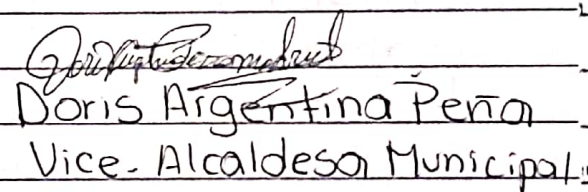 Doris Argentina Peña
Vice. Alcaldesa Municipal.